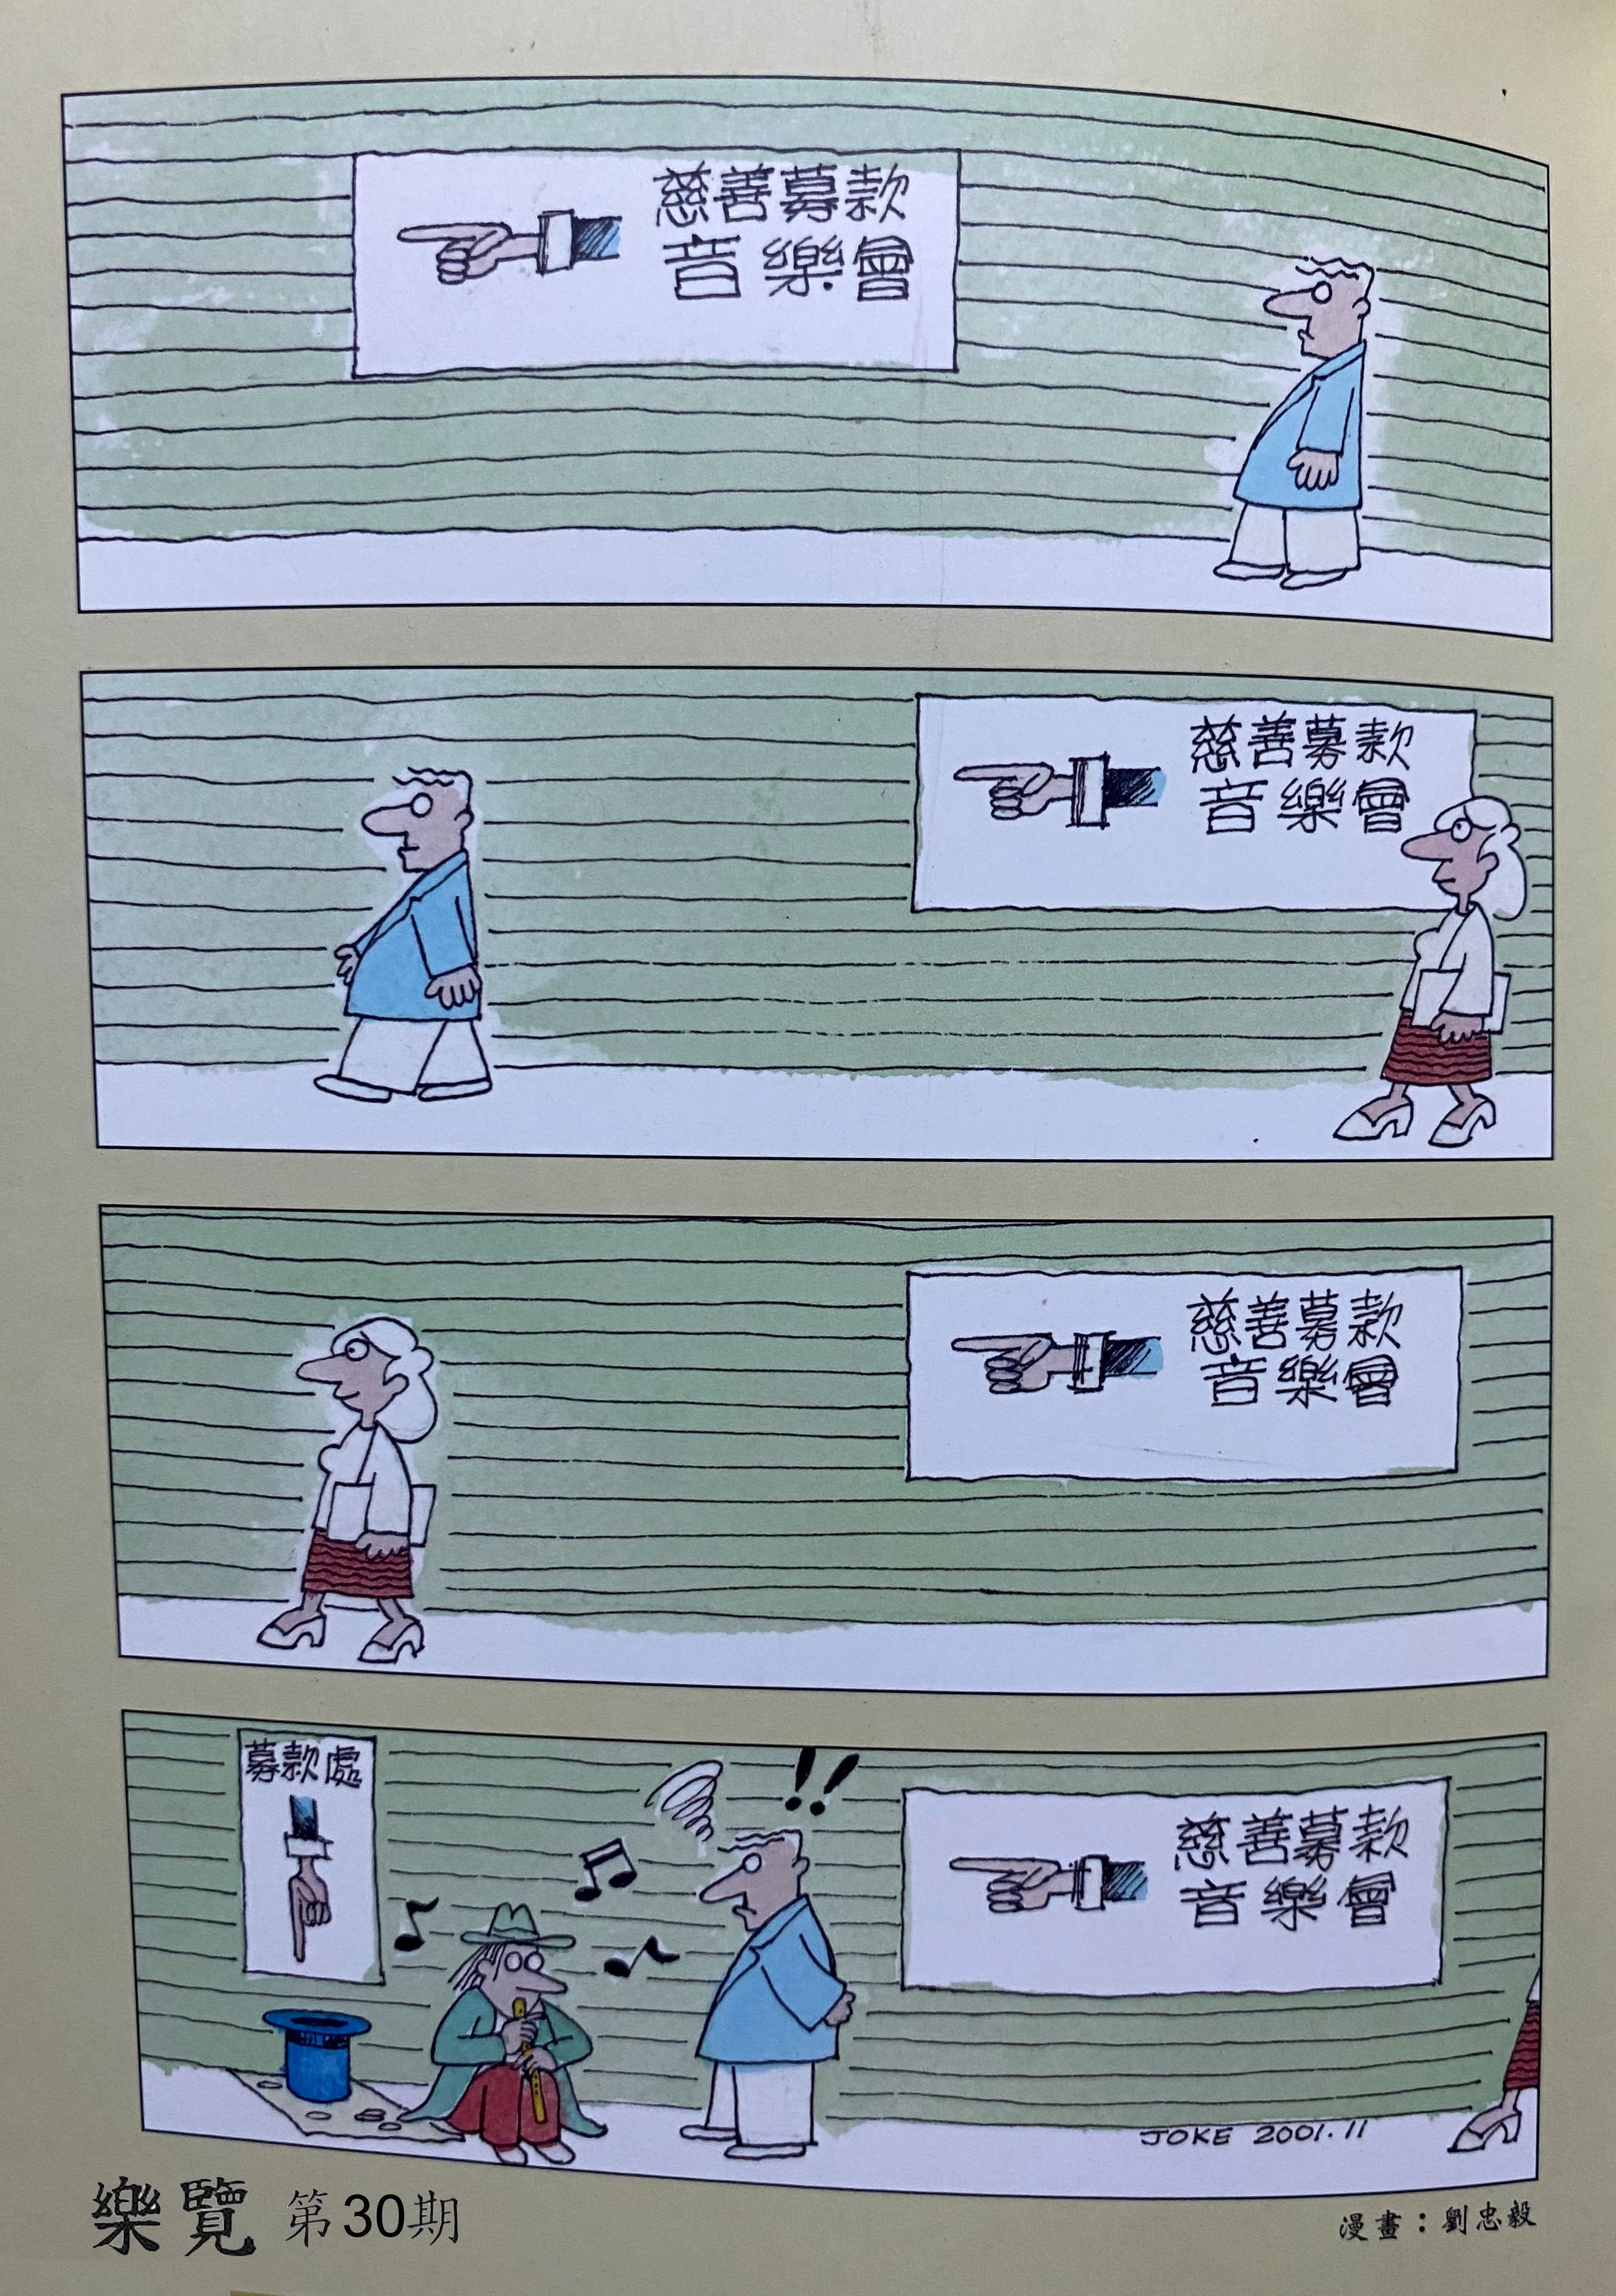 慈善募款
音樂會
慈善募款
音樂會
慈善募款
音樂會
募款處
!!
慈善募款
音樂會
JOKE 2001.11
樂覽 第30期
漫畫：劉忠毅